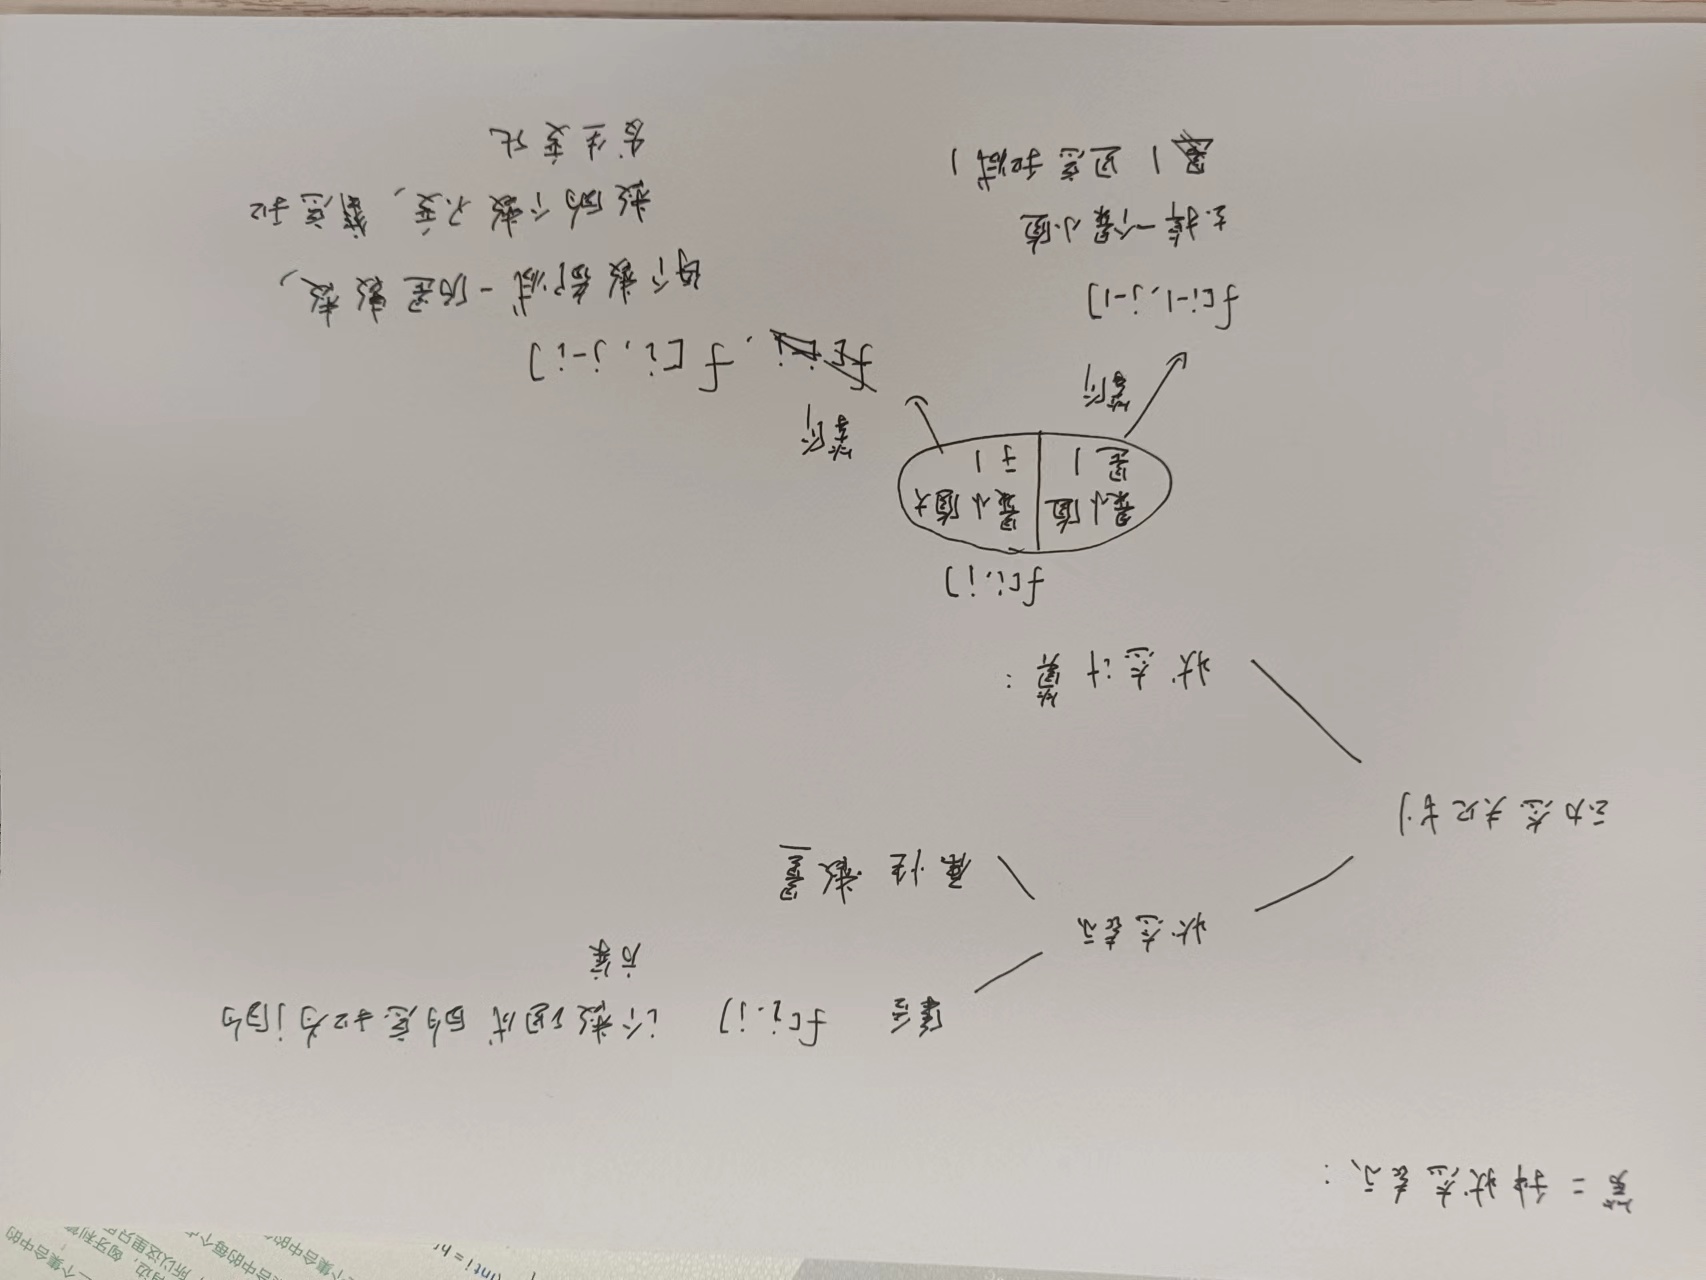 一个集合中的
有边，匈牙利算
所以这里只
集合中的每个点
个集合中的
(int i = h[
第二种状态表示：
集合 f[i,j] i个数组成的总和为j的
方案
状态表示
属性 数量
动态规划
状态计算：
f[i,j]
最小值 最小值大
是1 于1
等阶
等阶
f[i, j-i]
f[i-1,j-1]
每个数都减一仍是数，
去掉一个最小值
数的个数不变，总和
1 且总和减1
发生变化